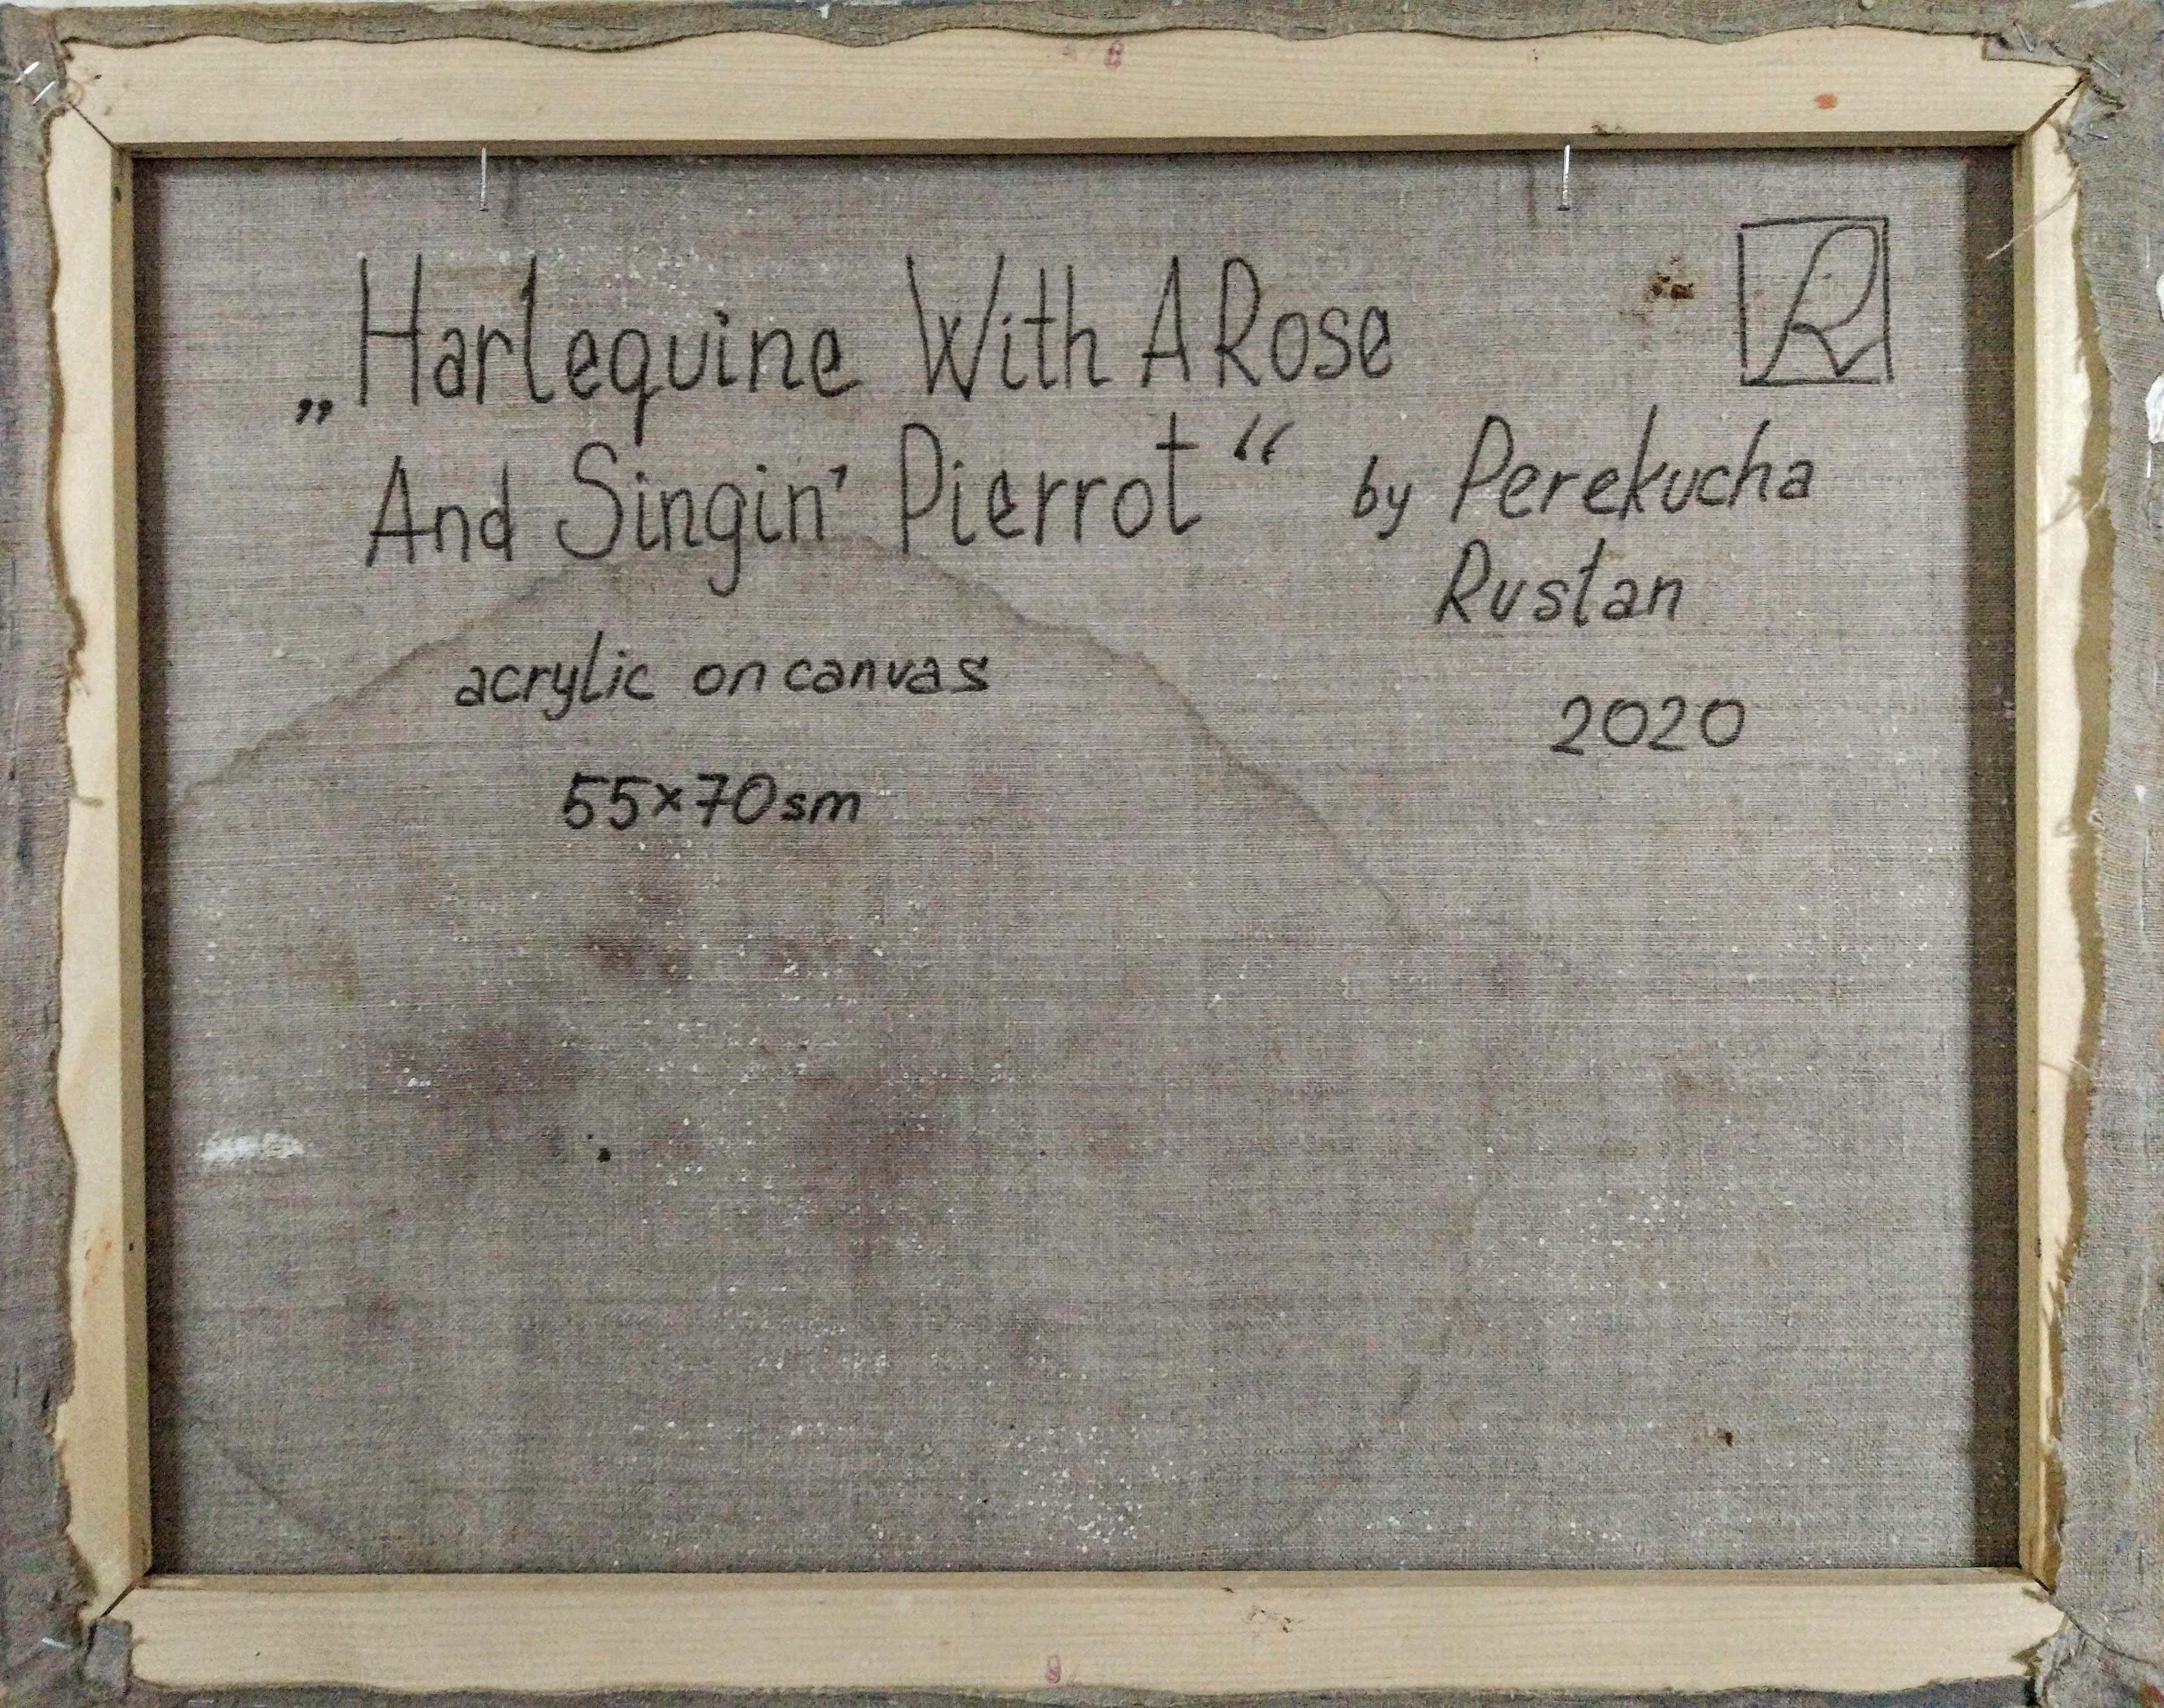 „Harlequine With A Rose
And Singin' Pierrot“ by Perekucha
Rustan
acrylic on canvas
2020
55×70sm
R